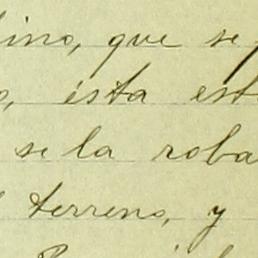 lino, que se
o, ésta est
se la roba
terreno, y